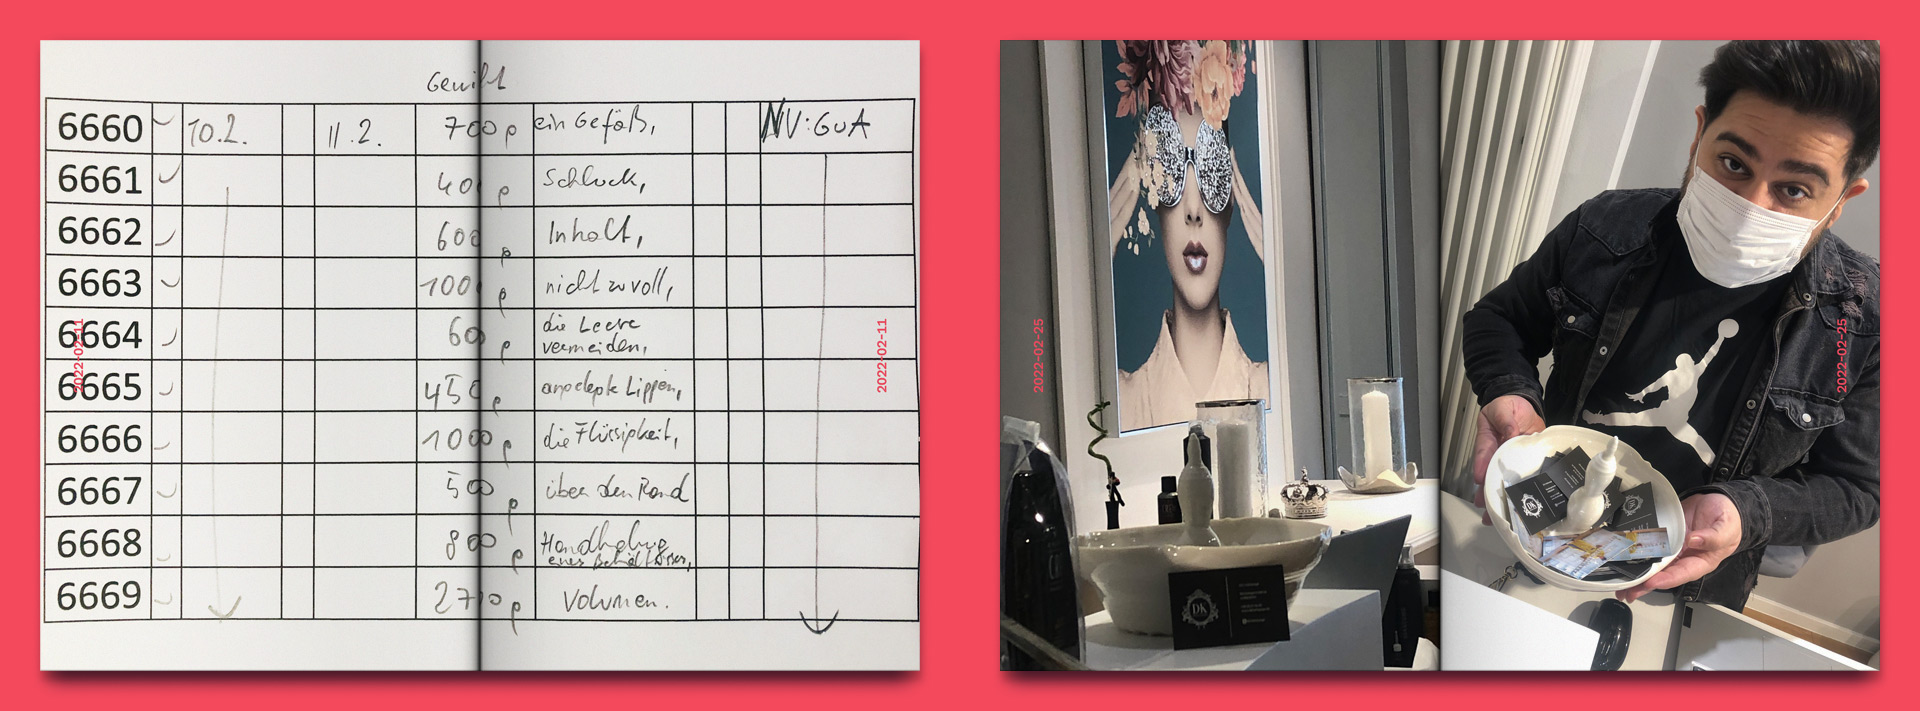 Gewicht
6660 10.2. 11.2. 700 g ein Gefäß, NV:GUA
6661 400 g Schluck,
6662 600 g Inhalt,
6663 1000 g nicht zu voll,
6664 600 g die Leere
vermeiden,
6665 450 g angelegte Lippen,
6666 1000 g die Flüssigkeit,
6667 500 g über den Rand
6668 800 g Handhabung
eines Behältnisses,
6669 2700 g Volumen.
2022-02-11
2022-02-11
2022-02-25
2022-02-25
DK
DK